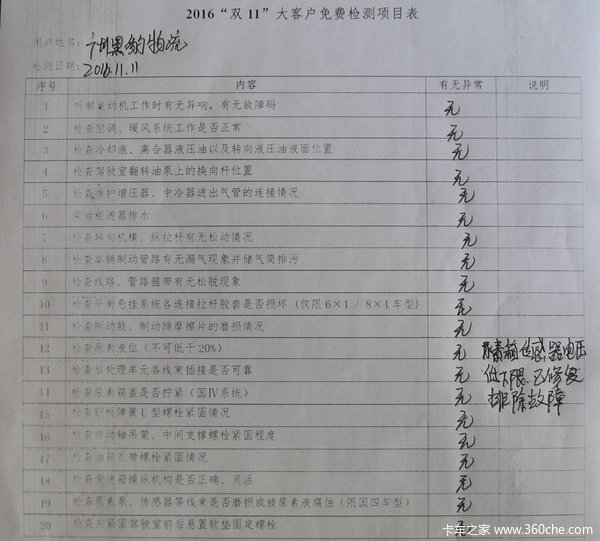 2016“双11”大客户免费检测项目表
用户姓名：广州黑豹物流
检测日期：2016.11.11
序号 内容 有无异常 说明
1 听察发动机工作时有无异响，有无故障码 无
2 检查空调、暖风系统工作是否正常 无
3 检查冷却液、离合器液压油以及转向液压油液面位置 无
4 检查驾驶室翻转油泵上的换向杆位置 无
5 检查维护增压器、中冷器进出气管的连接情况 无
6 柴油粗滤器排水 无
7 检查转向机横、纵拉杆有无松动情况 无
8 检查车辆制动管路有无漏气现象并储气筒排污 无
9 检查线路、管路箍带有无松脱现象 无
10 检查平衡悬挂系统各连接拉杆胶套是否损坏（仅限6×4 / 8×4车型） 无
11 检查制动鼓、制动蹄摩擦片的磨损情况 无
12 检查尿素液位（不可低于20%） 无 尿素箱传感器电压
13 检查后处理单元各线束插接是否可靠 无 低下限.已修复
14 检查尿素箱盖是否拧紧（国Ⅳ系统） 无 排除故障
15 检查钢板弹簧U型螺栓紧固情况 无
16 检查传动轴吊架、中间支撑螺栓紧固程度 无
17 检查油箱扎带螺栓紧固情况 无
18 检查变速箱操纵机构是否正确、灵活 无
19 检查尿素泵、传感器等线束是否磨损或被尿素液腐蚀（限国四车型） 无
20 检查并紧固驾驶室前后悬置软垫固定螺栓 无
卡车之家 www.360che.com